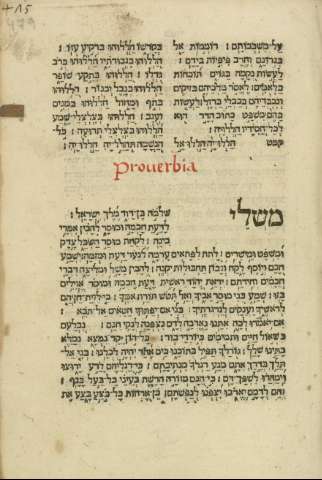 +15
על משכבותם : רוממות אל
בגרונם וחרב פיפיות בידם :
לעשות נקמה בגוים תוכחות
בלאמים : לאסר מלכיהם בזיקים
ונכבדיהם בכבלי ברזל : לעשות
בהם משפט כתוב הדר הוא
לכל חסידיו הללויה :
הללויה הללו אל
בקדשו הללוהו ברקיע עזו :
הללוהו בגבורתיו הללוהו כרב
גדלו : הללוהו בתקע שופר
הללוהו בנבל וכנור : הללוהו
בתף ומחול הללוהו במנים
ועגב : הללוהו בצלצלי שמע
הללוהו בצלצלי תרועה : כל
הנשמה תהלל יה הללויה :
Proverbia
משלי
שלמה בן דוד מלך ישראל :
לדעת חכמה ומוסר להבין אמרי
בינה : לקחת מוסר השכל צדק
ומשפט ומישרים : לתת לפתאים ערמה לנער דעת ומזמה : ישמע
חכם ויוסף לקח ונבון תחבולות יקנה : להבין משל ומליצה דברי
חכמים וחידתם : יראת יהוה ראשית דעת חכמה ומוסר אוילים
בזו : שמע בני מוסר אביך ואל תטש תורת אמך : כי לוית חן הם
לראשך וענקים לגרגרתיך : בני אם יפתוך חטאים אל תבא :
אם יאמרו לכה אתנו נארבה לדם נצפנה לנקי חנם : נבלעם
כשאול חיים ותמימים כיורדי בור : כל הון יקר נמצא נמלא
בתינו שלל : גורלך תפיל בתוכנו כיס אחד יהיה לכלנו : בני אל
תלך בדרך אתם מנע רגלך מנתיבתם : כי רגליהם לרע ירוצו
וימהרו לשפך דם : כי חנם מזורה הרשת בעיני כל בעל כנף :
והם לדמם יארבו יצפנו לנפשתם : כן ארחות כל בצע בצע את